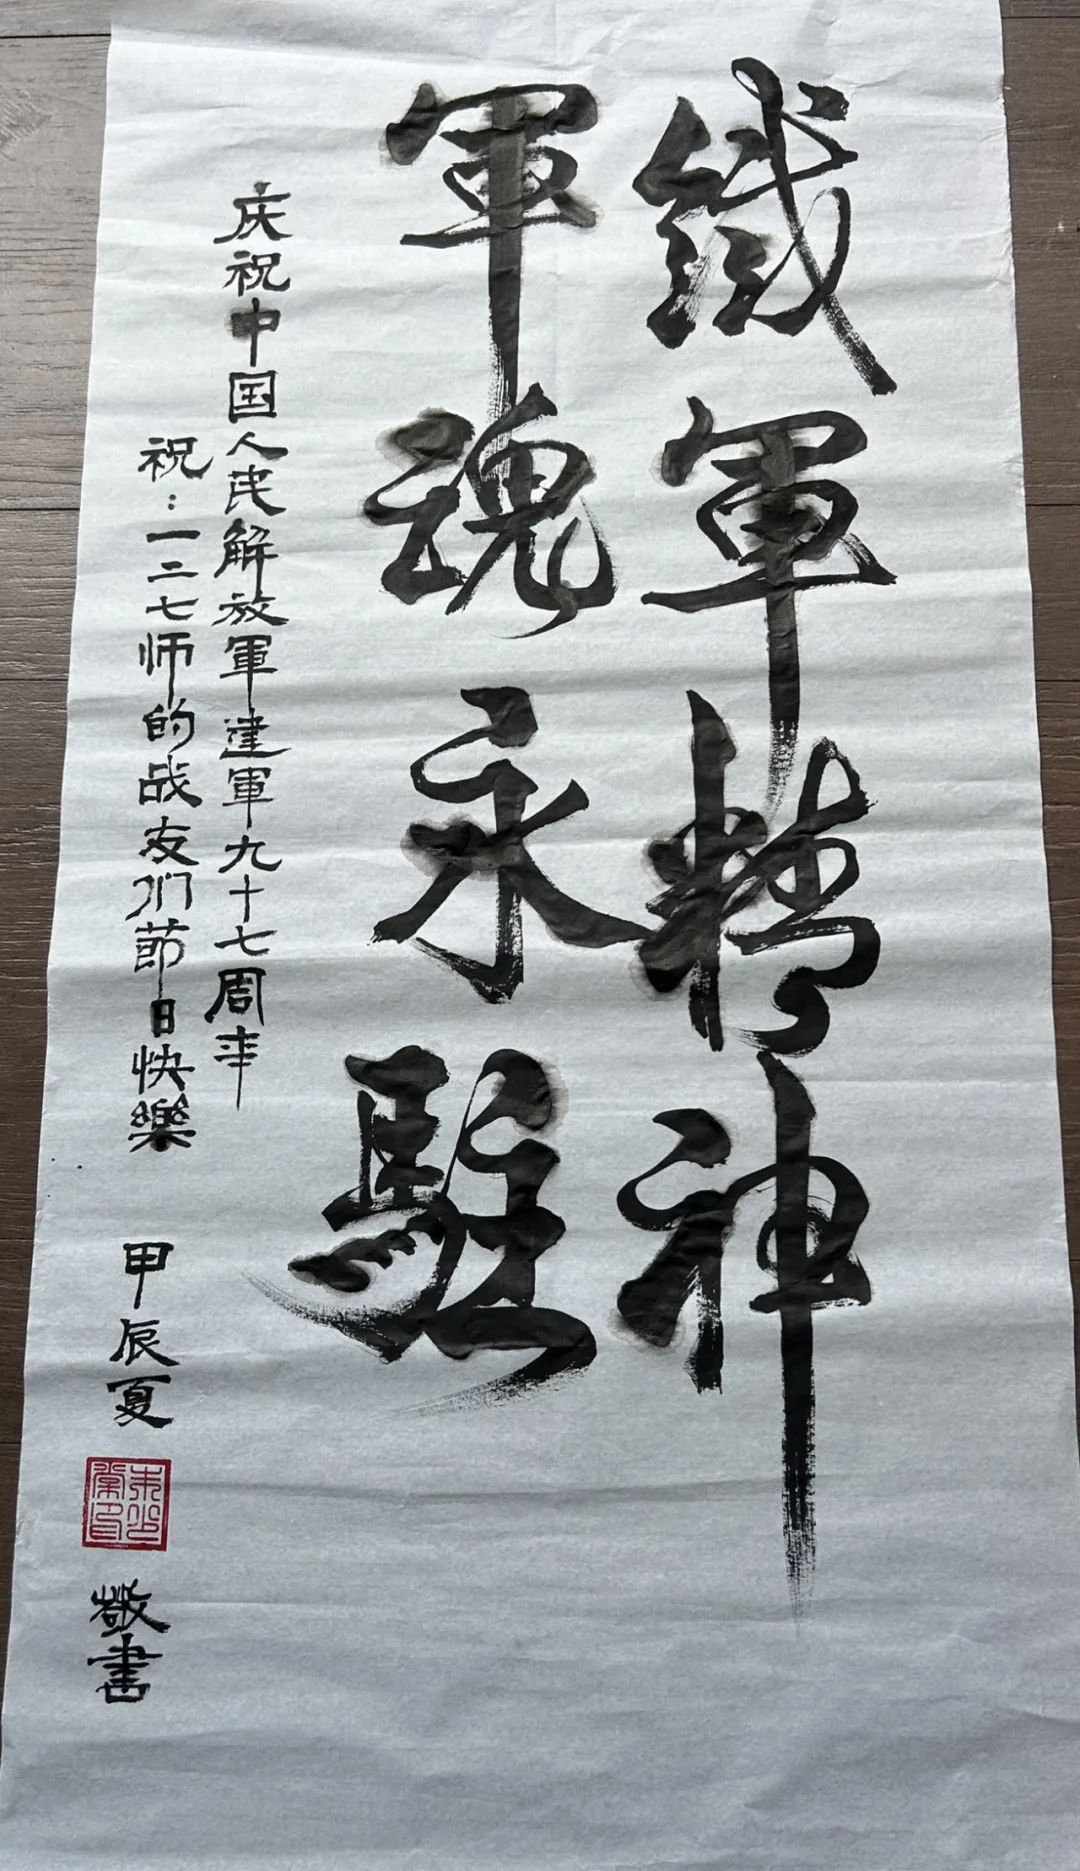 鐵軍精神
軍魂永駐
庆祝中国人民解放軍建軍九十七周年
祝：一二七师的战友们節日快樂
甲辰夏
敬書